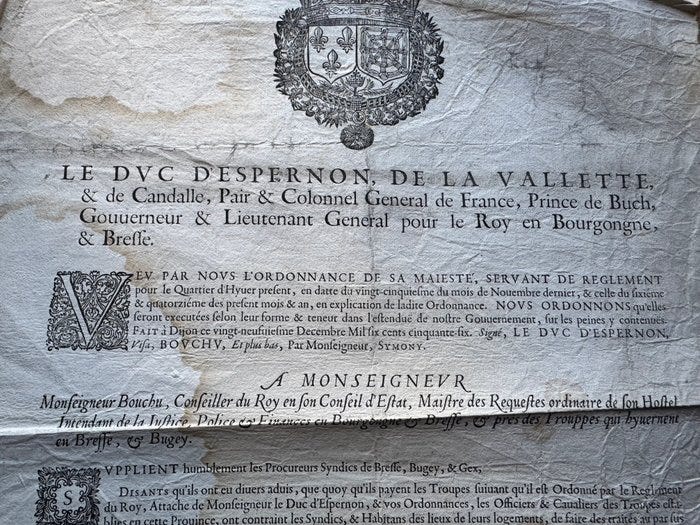 LE DVC D'ESPERNON, DE LA VALLETTE,
& de Candalle, Pair & Colonnel General de France, Prince de Buch,
Gouuerneur & Lieutenant General pour le Roy en Bourgongne,
& Bresse.
VEV PAR NOVS L'ORDONNANCE DE SA MAIESTÉ, SERVANT DE REGLEMENT
pour le Quartier d'Hyuer present, en datte du vingt-cinquiesme du mois de Nouembre dernier, & celle du sixiéme
& quatorziéme des present mois & an, en explication de ladite Ordonnance. NOVS ORDONNONS qu'elles
seront executées selon leur forme & teneur dans l'estenduë de nostre Gouuernement, sur les peines y contenuës.
FAIT à Dijon ce vingt-neufuiesme Decembre Mil six cents cinquante-six. Signé, LE DVC D'ESPERNON,
Visa, BOVCHV, Et plus bas, Par Monseigneur, SYMONY.
A MONSEIGNEVR
Monseigneur Bouchu, Conseiller du Roy en son Conseil d'Estat, Maistre des Requestes ordinaire de son Hostel
Intendant de la Iustice, Police & Finances en Bourgongne & Bresse, & prés des Trouppes qui hyuernent
en Bresse, & Bugey.
SVPPLIENT humblement les Procureurs Syndics de Bresse, Bugey, & Gex,
DISANTS qu'ils ont eu diuers aduis, que quoy qu'ils payent les Troupes suiuant qu'il est Ordonné par le Reglement
du Roy, Attache de Monseigneur le Duc d'Espernon, & vos Ordonnances, les Officiers & Caualiers des Troupes esta-
blies en cette Prouince, ont contraint les Syndics, & Habitans des lieux de leurs logements, de faire des traités au par